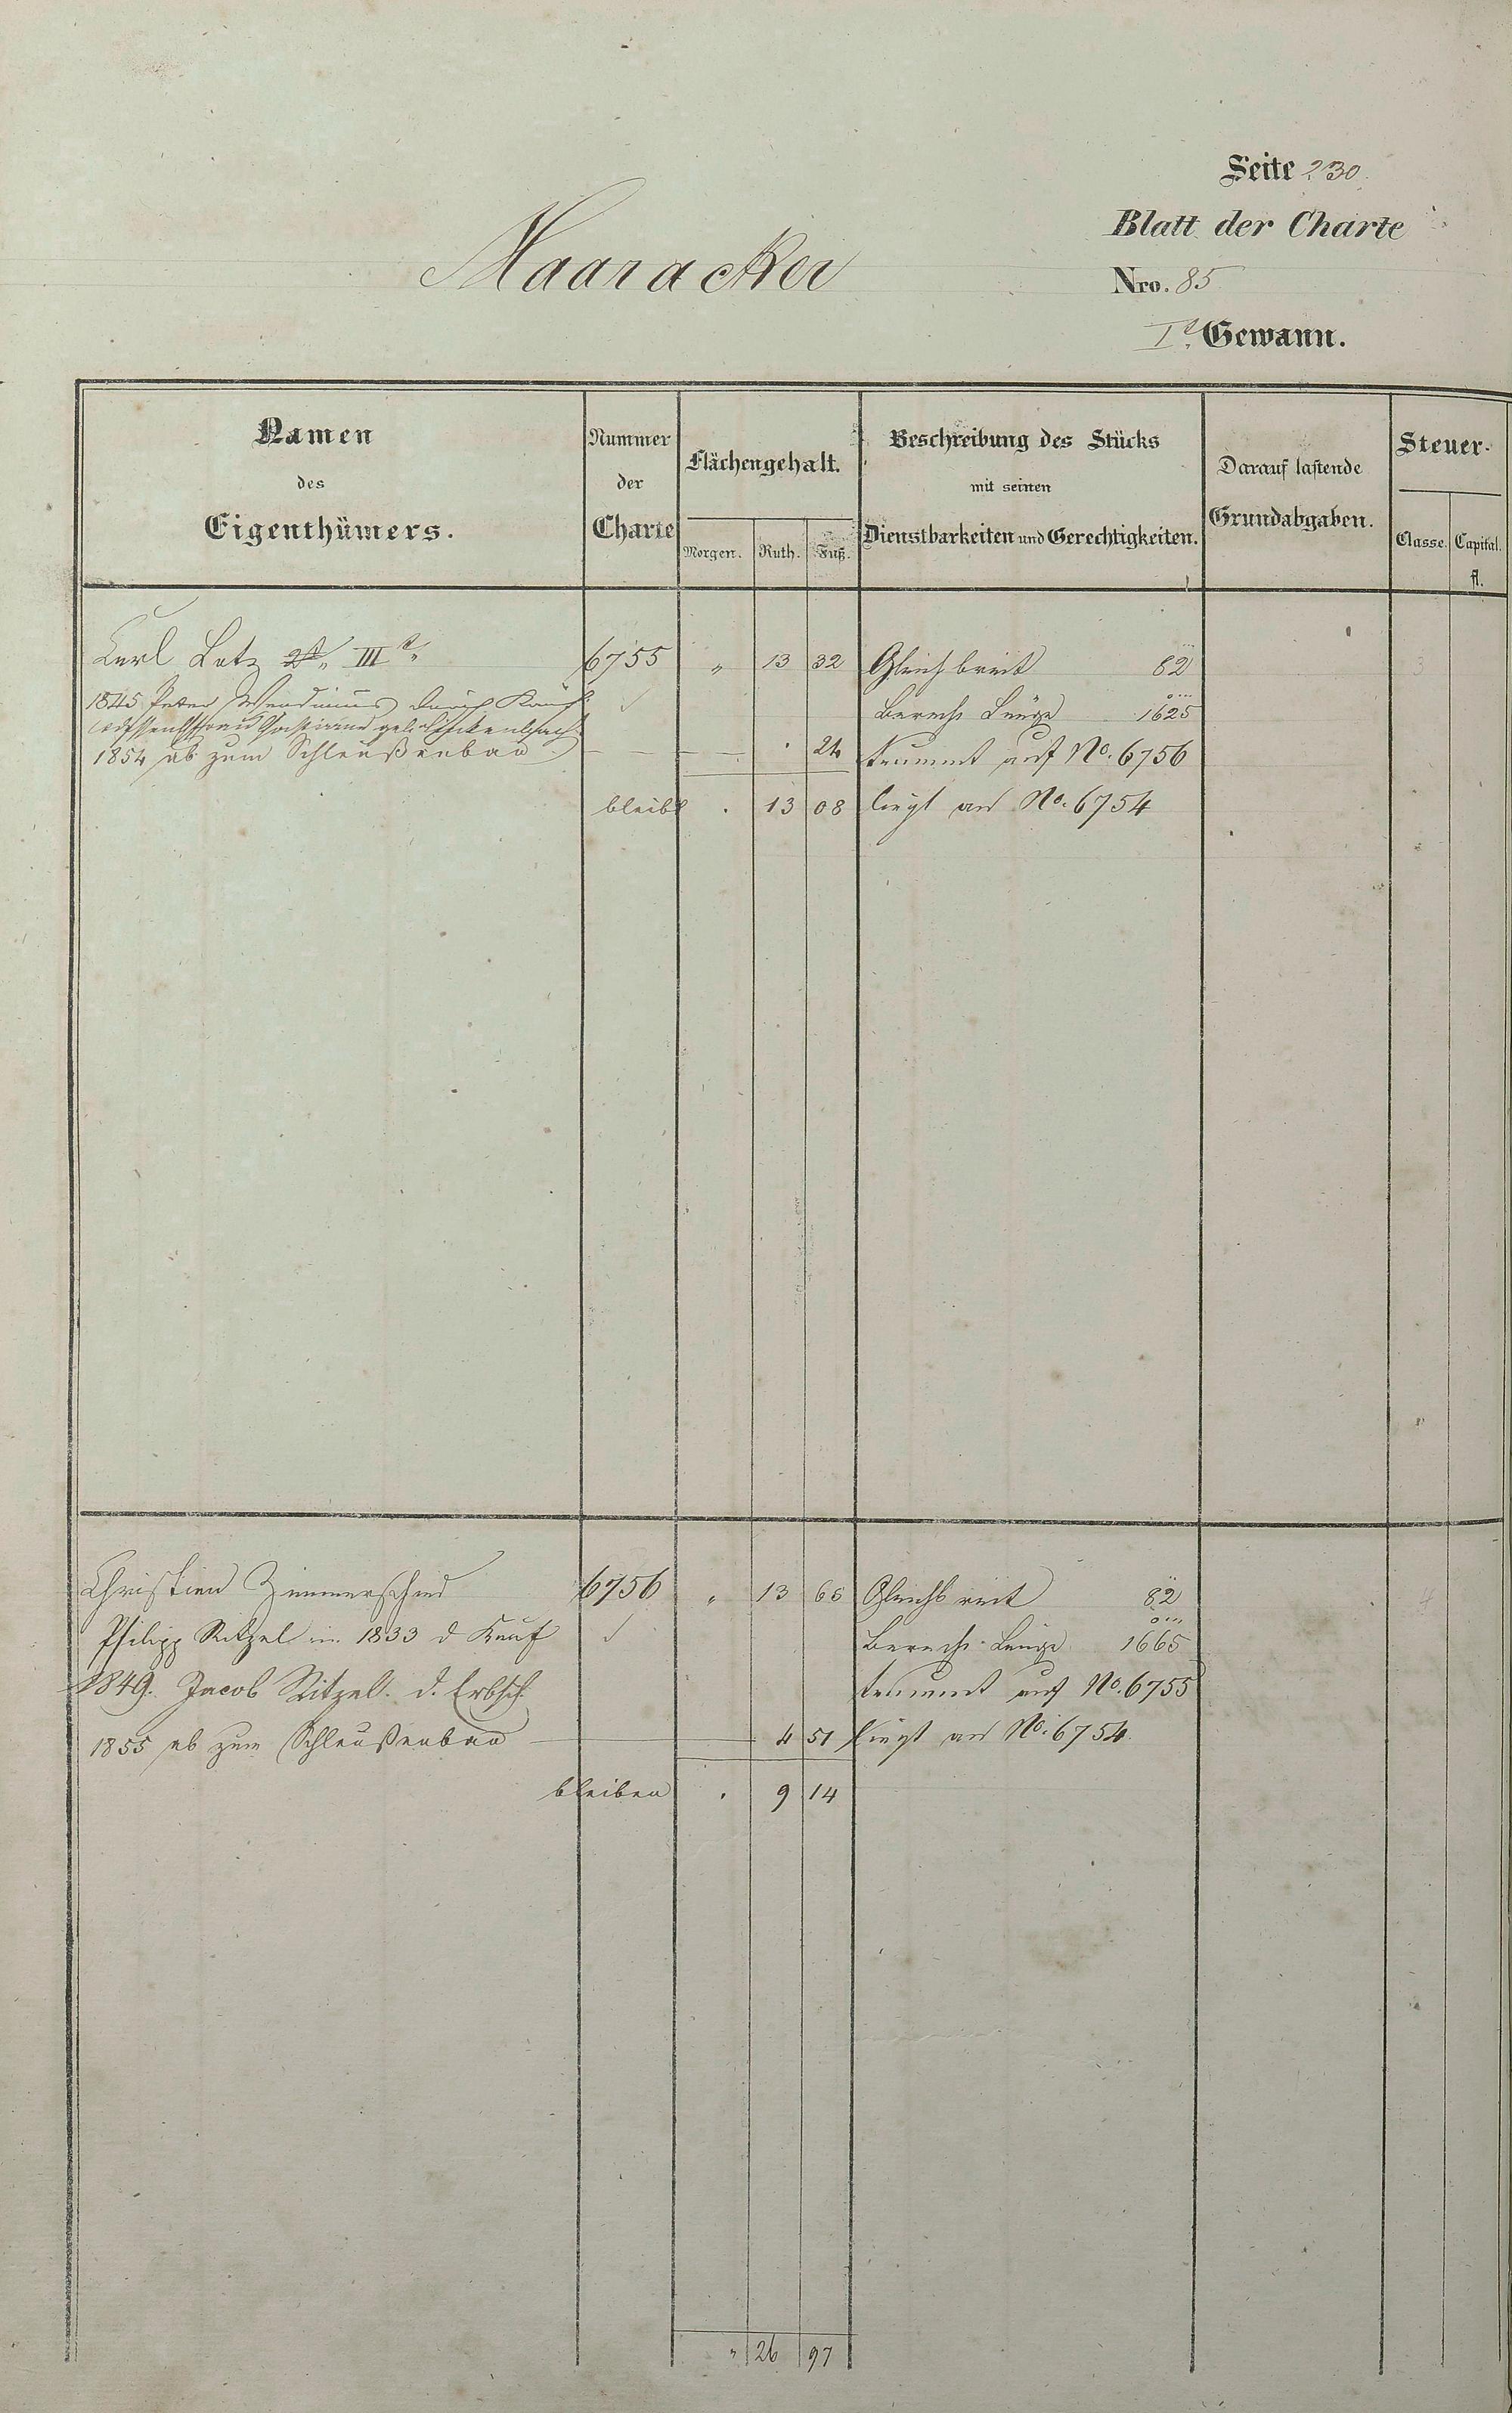 Seite 230.
Blatt der Charte
Maaracker
Nro. 85
I.te Gewann.
Namen des Eigenthümers.
Nummer der Charte
Flächengehalt.
Morgen. Ruth. Fuß.
Beschreibung des Stücks mit seinen Dienstbarkeiten und Gerechtigkeiten.
Darauf lastende Grundabgaben.
Steuer-
Classe. Capital.
fl.
Carl Latz 2t. IIIt. 6755 " 13 32 Gleich breit 82 3
1845 Peter durch Kauf Berech. Länge 1625
1854 ab zum Schleußenbau — . 24 kommt auf No. 6756
bleibt . 13 08 liegt an No. 6754
Christian Zimmerschied 6756 " 13 65 Gleichbreit 82 4
Philipp Ritzel in 1833 d Kauf Berech. Länge 1665
1849. Jacob Ritzel. d. Erbsch. kommt auf No. 6755
1855 ab zum Schleußenbau — 4 51 liegt an No. 6754
bleiben . 9 14
" 26 97